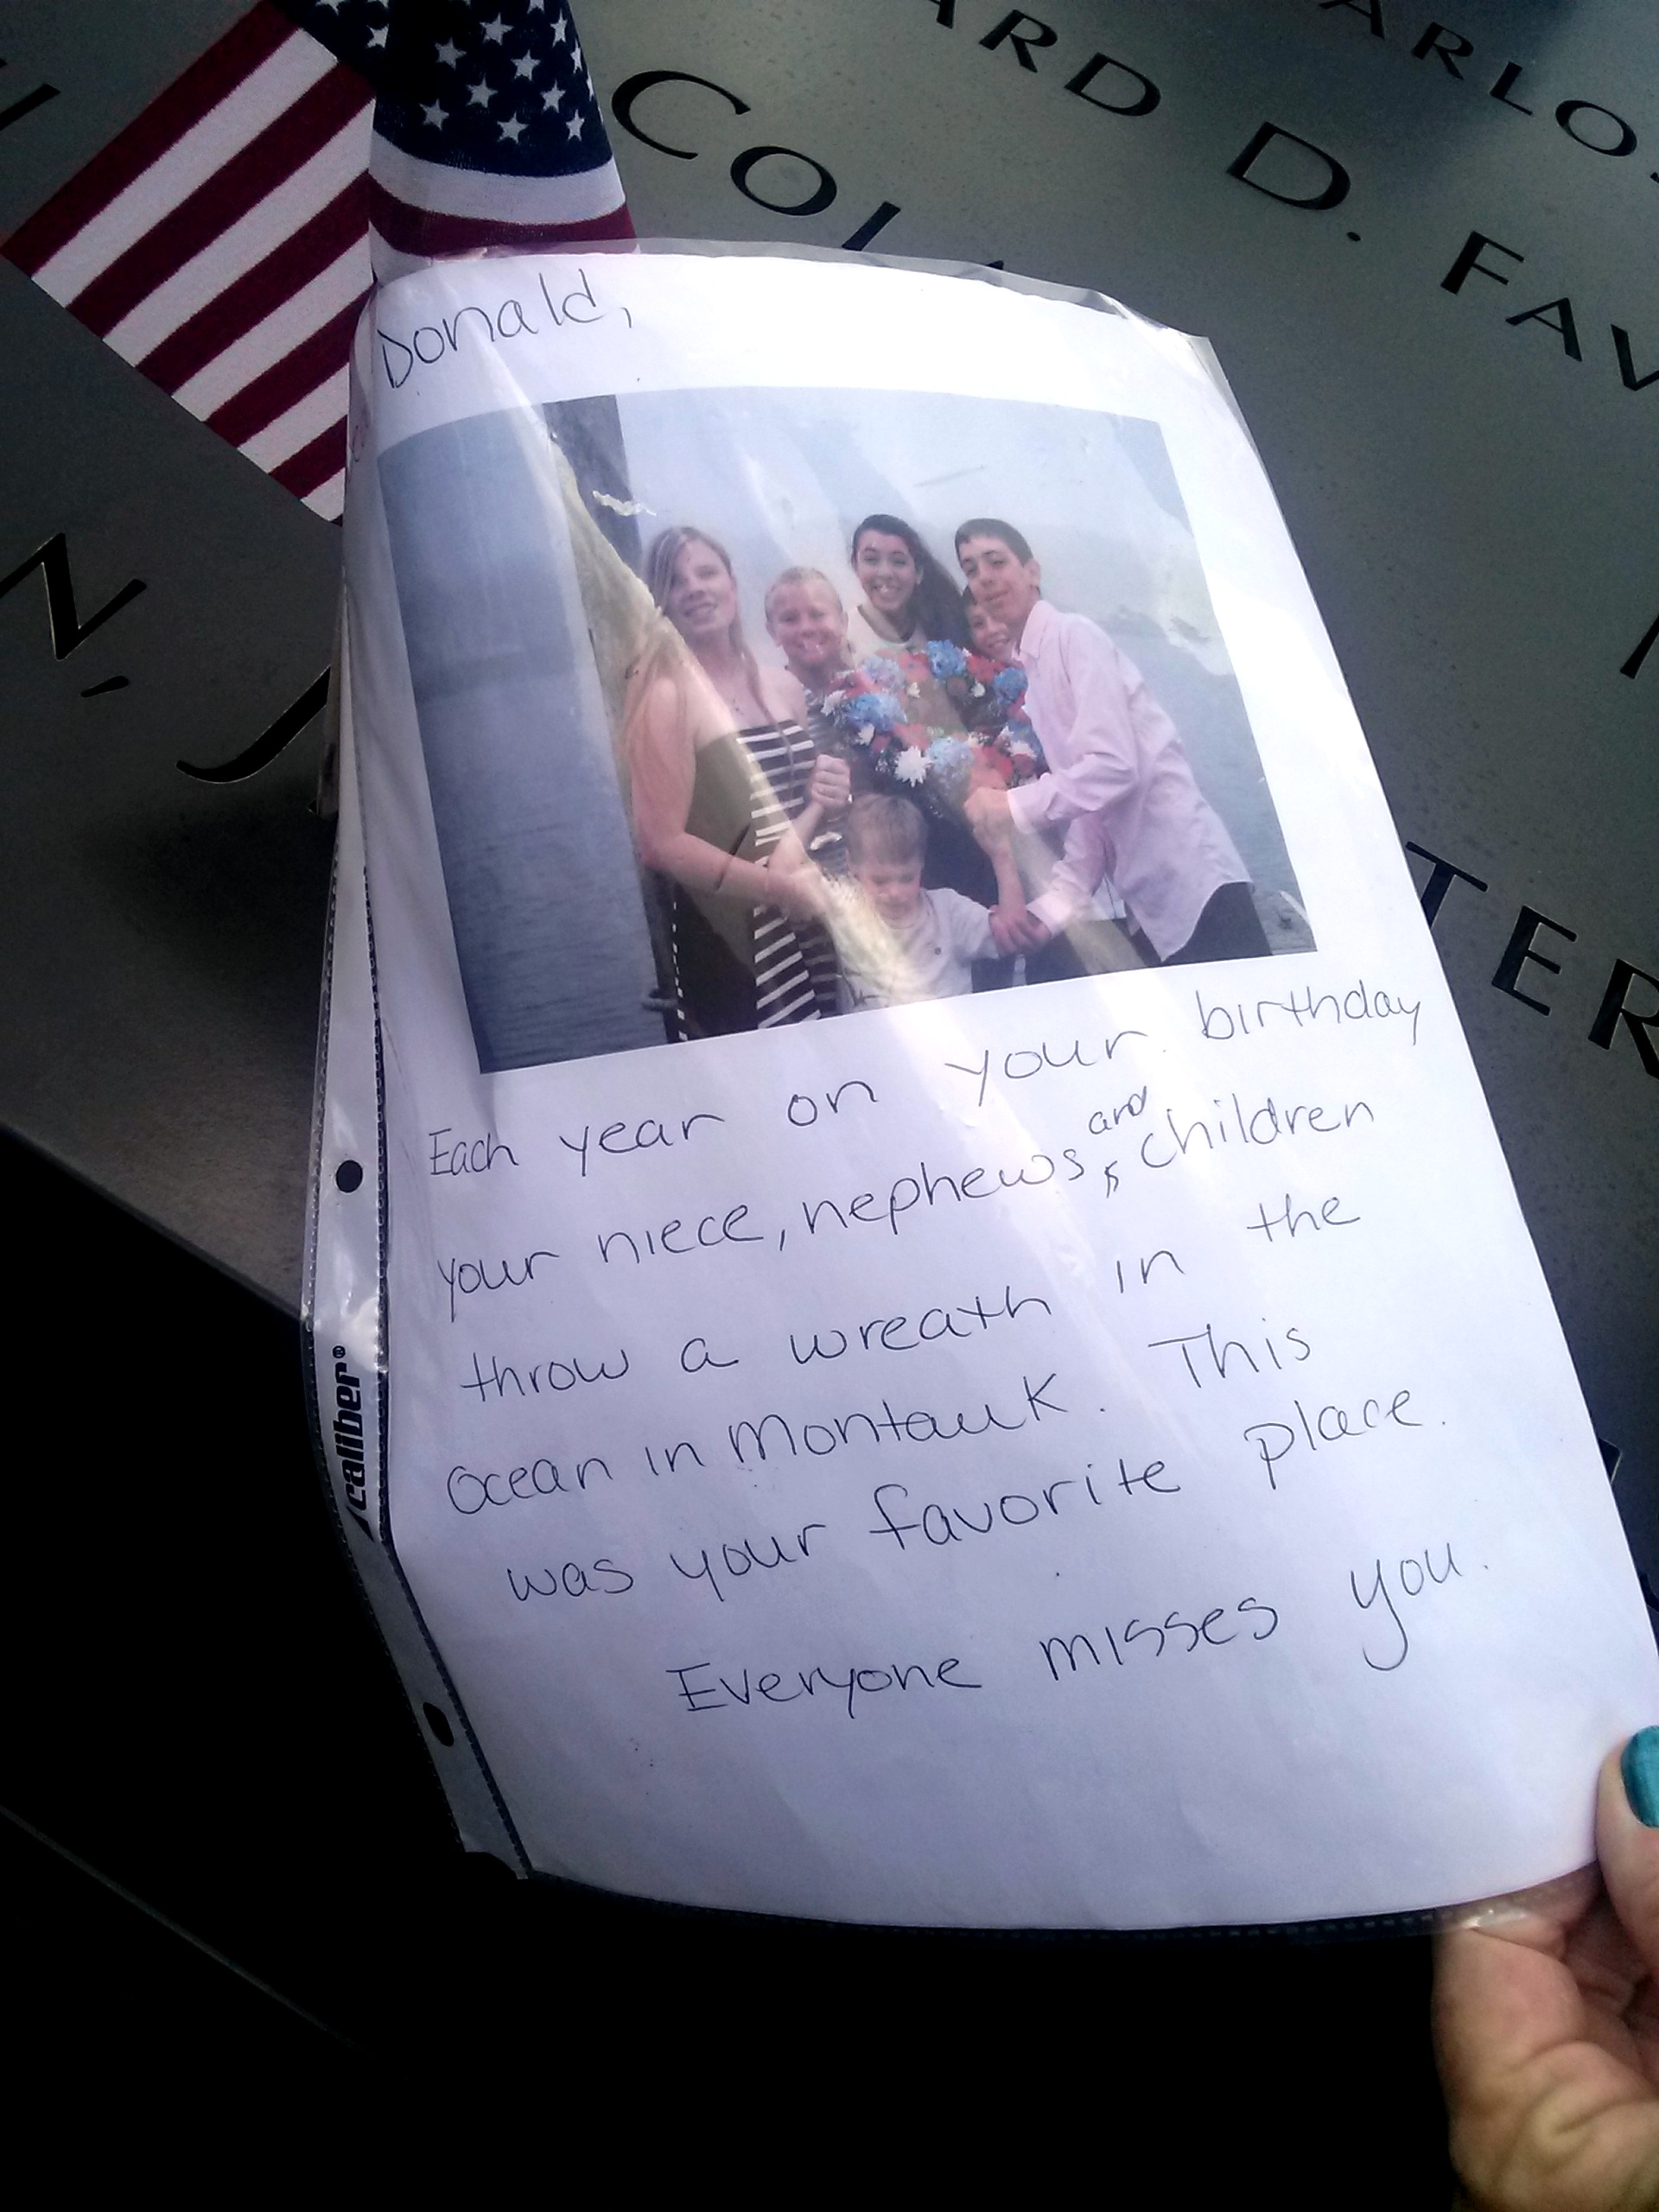 COL
ARD D. FAV
ARLOS
N, J
TER
Donald,
Each year on your birthday
your niece, nephews, and children
throw a wreath in the
ocean in Montauk. This
was your favorite place.
Everyone misses you.
caliber®